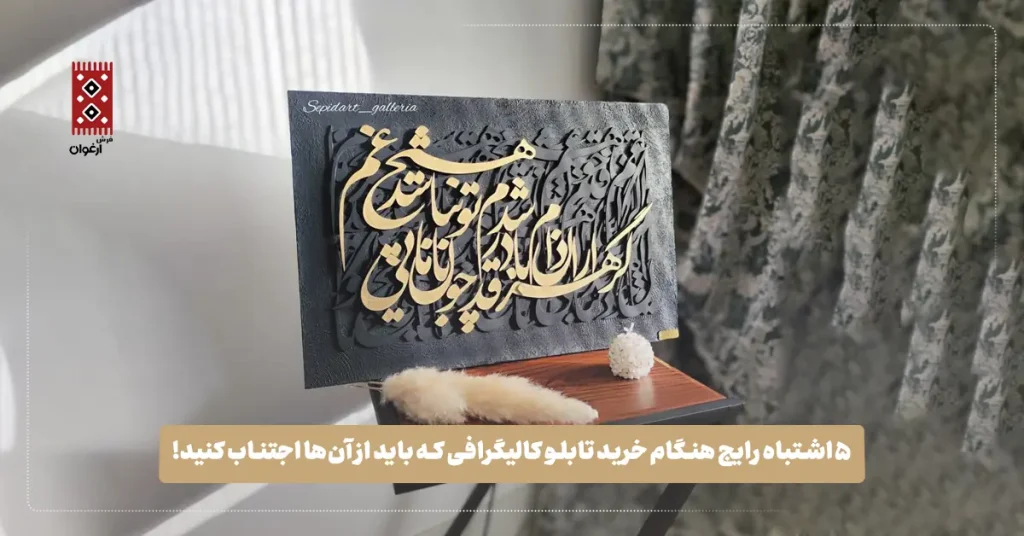 فرش
ارغوان
Sepidart_galleria
گر هزاران دام باشد در قدم
چون تو با مایی نباشد هیچ غم
۵ اشتباه رایج هنگام خرید تابلو کالیگرافی که باید از آن ها اجتناب کنید!